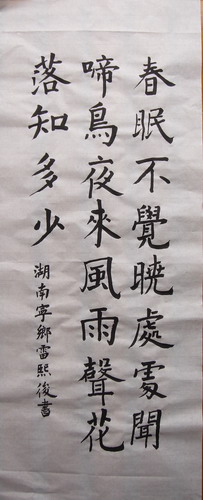 春眠不覺曉處處聞
啼鳥夜來風雨聲花
落知多少
湖南寧鄉雷熙俊書